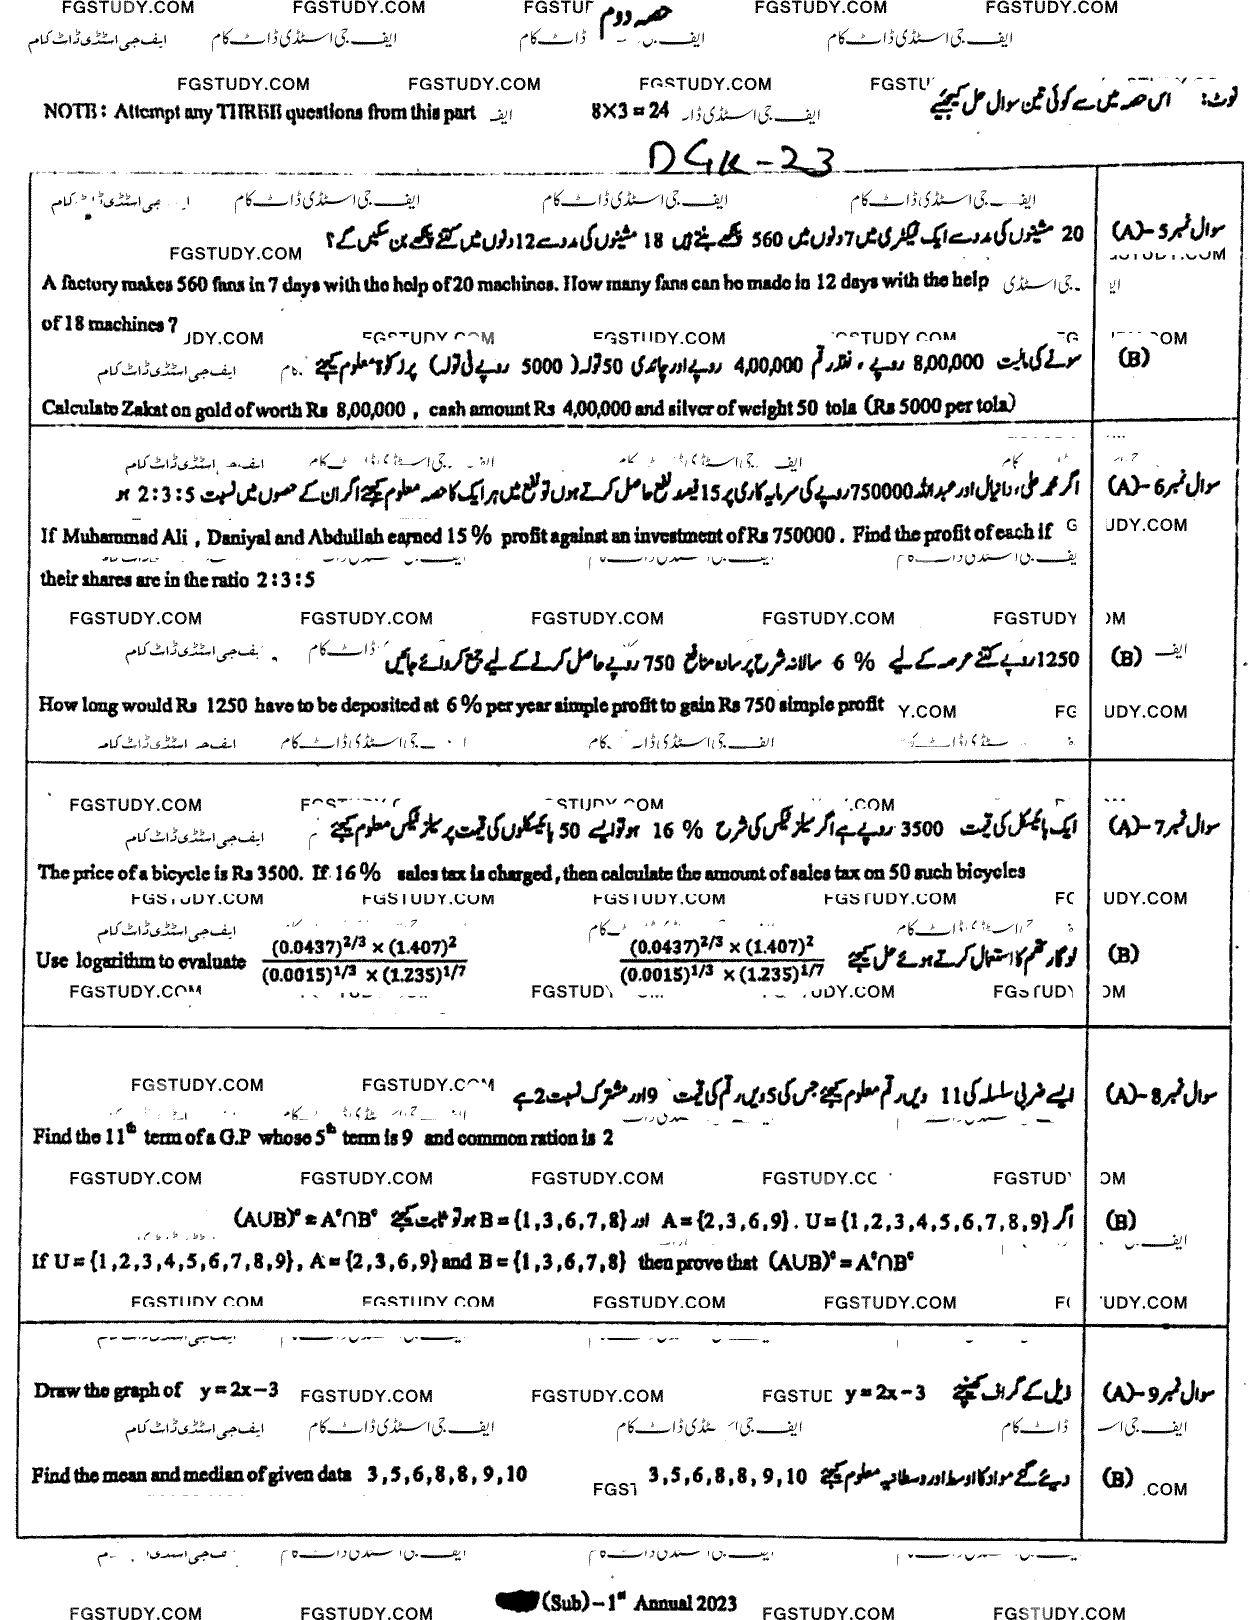 حصہ دوم
NOTE: Attempt any THREE questions from this part 8×3=24 نوٹ: اس حصہ میں سے کوئی تین سوال حل کیجئیے
DGK-23
سوال نمبر 5-(A) 20 مشینوں کی مدد سے ایک فیکٹری میں 7 دنوں میں 560 پنکھے بنتے ہیں 18 مشینوں کی مدد سے 12 دنوں میں کتنے پنکھے بن سکیں گے؟
A factory makes 560 fans in 7 days with the help of 20 machines. How many fans can be made in 12 days with the help
of 18 machines ?
(B) سونے کی مالیت 8,00,000 روپے، نقد رقم 4,00,000 روپے اور چاندی 50 تولہ (5000 روپے فی تولہ) پر زکوٰۃ معلوم کیجئے
Calculate Zakat on gold of worth Rs 8,00,000 , cash amount Rs 4,00,000 and silver of weight 50 tola (Rs 5000 per tola)
سوال نمبر 6-(A) اگر محمد علی، دانیال اور عبداللہ 750000 روپے کی سرمایہ کاری پر 15 فیصد نفع حاصل کرتے ہوں تو نفع میں ہر ایک کا حصہ معلوم کیجئے اگر ان کے حصوں میں نسبت 2:3:5 ہو
If Muhammad Ali , Daniyal and Abdullah earned 15 % profit against an investment of Rs 750000 . Find the profit of each if
their shares are in the ratio 2:3:5
(B) 1250 روپے کتنے عرصہ کے لیے 6 % سالانہ شرح پر سادہ منافع 750 روپے حاصل کرنے کے لیے جمع کروائے جائیں
How long would Rs 1250 have to be deposited at 6 % per year simple profit to gain Rs 750 simple profit
سوال نمبر 7-(A) ایک بائیسکل کی قیمت 3500 روپے ہے اگر سیلز ٹیکس کی شرح 16 % ہو تو ایسے 50 بائیسکلوں کی قیمت پر سیلز ٹیکس معلوم کیجئے
The price of a bicycle is Rs 3500. If 16 % sales tax is charged, then calculate the amount of sales tax on 50 such bicycles
(B) لوگارتھم کا استعمال کرتے ہوئے حل کیجئے (0.0437)^2/3 × (1.407)^2 / (0.0015)^1/3 × (1.235)^1/7
Use logarithm to evaluate (0.0437)^2/3 × (1.407)^2 / (0.0015)^1/3 × (1.235)^1/7
سوال نمبر 8-(A) ایسے ضربی سلسلہ کی 11 ویں رقم معلوم کیجئے جس کی 5 ویں رقم کی قیمت 9 اور مشترک نسبت 2 ہے
Find the 11th term of a G.P whose 5th term is 9 and common ration is 2
(B) اگر U={1,2,3,4,5,6,7,8,9} . A={2,3,6,9} اور B={1,3,6,7,8} ہو تو ثابت کیجئے (AUB)ᶜ = Aᶜ∩Bᶜ
If U={1,2,3,4,5,6,7,8,9} , A={2,3,6,9} and B={1,3,6,7,8} then prove that (AUB)ᶜ = Aᶜ∩Bᶜ
سوال نمبر 9-(A) ذیل کے گراف کھینچئے y=2x-3
Draw the graph of y=2x-3
(B) دیئے گئے مواد کا اوسط اور وسطانیہ معلوم کیجئے 3,5,6,8,8,9,10
Find the mean and median of given data 3,5,6,8,8,9,10
(Sub)-1st Annual 2023
FGSTUDY.COM
ایف جی اسٹڈی ڈاٹ کام